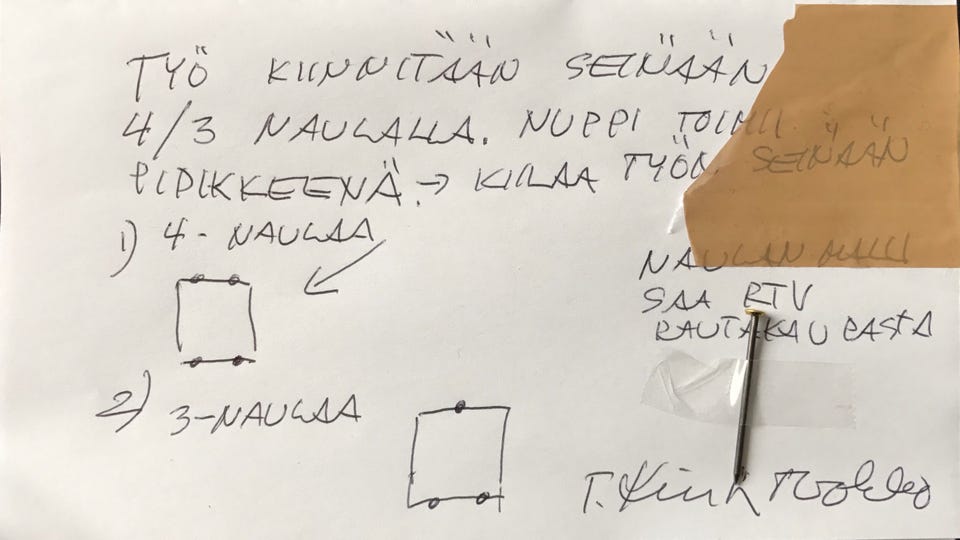 TYÖ KIINNITÄÄN SEINÄÄN
4/3 NAULALLA. NUPPI TOIMII
PIDIKKEENÄ. → KIILAA TYÖN SEINÄÄN
1) 4-NAULAA
NAULAN MALLI
SAA RTV
RAUTAKAUPASTA
2) 3-NAULAA
T.